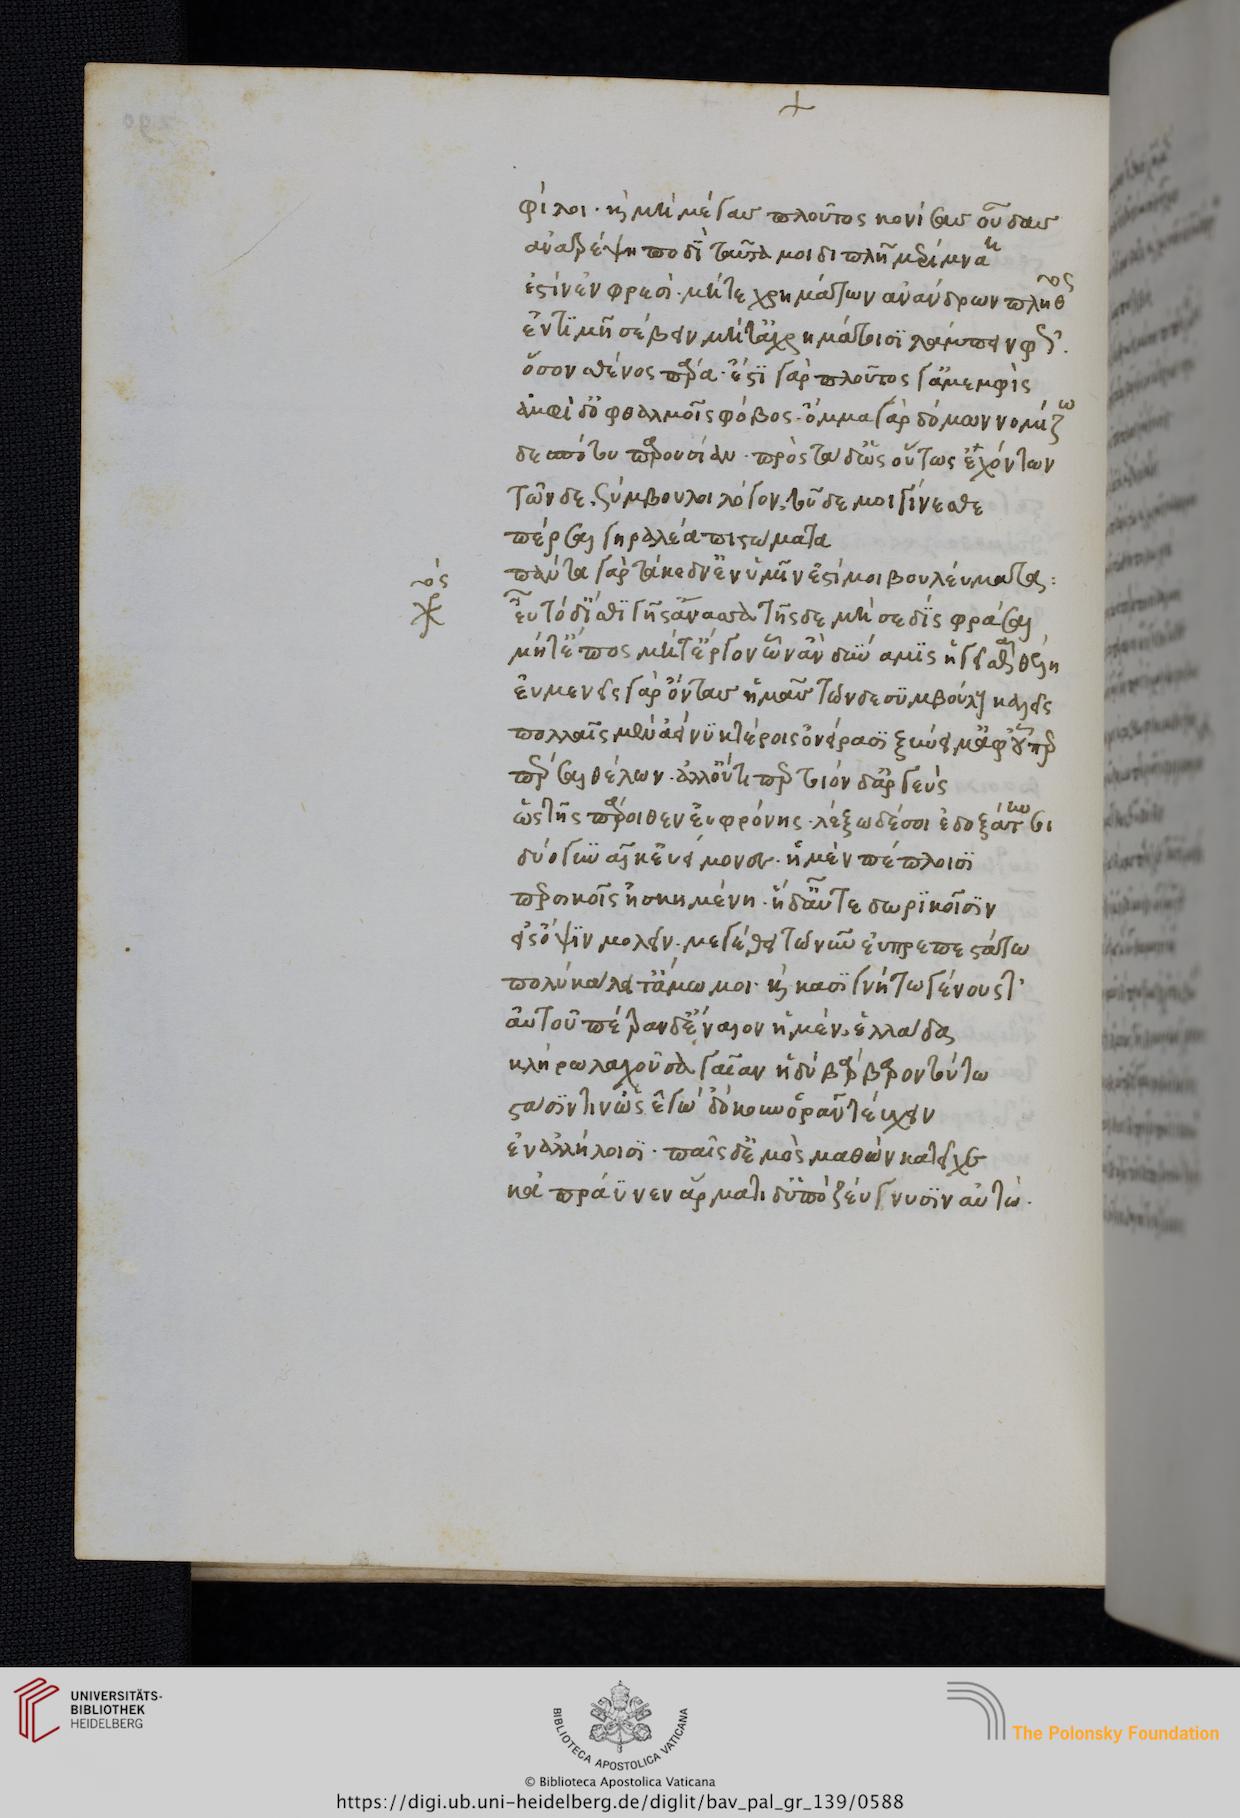 φίλοι· καὶ μὴ μέγας πλοῦτος κονίσας οὖδας
ἀντρέψη ποδὶ ταῦτά μοι διπλῆ μέριμνα
ἐστὶν ἐν φρεσὶ· μήτε χρημάτων ἀνάνδρων πλῆθος
ἐν τιμῆ σέβειν μήτ' ἀχρημάτοισι λάμπειν φῶς.
ὅσον σθένος πάρα· ἔστι γὰρ πλοῦτος γ' ἀμεμφὶς
ἀμφὶ δ' ὀφθαλμοῖς φόβος· ὄμμα γὰρ δόμων νομίζω
δεσπότου παρουσίαν· πρὸς τάδ' ὡς οὕτως ἐχόντων
τῶνδε, ξύμβουλοι λόγου, τοῦδέ μοι γίνεσθε
πέρσαι γηραλέα πιστώματα
πάντα γὰρ τὰ κέδν' ἐν ὑμῖν ἐστί μοι βουλεύματα:
χος εὖ τόδ' ἴσθι γῆς ἄνασσα τῆσδε μή σε δὶς φράσαι
μήτ' ἔπος μήτ' ἔργον ὧν ἂν δύναμις ἡγεῖσθαι θέλη
εὐμενεῖς γὰρ ὄντας ἡμᾶς τῶνδε συμβούλους καλεῖς
πολλοῖς μὲν ἀεὶ νυκτέροις ὀνείρασι ξύνειμ' ἀφ' οὗπερ
πέρσαι θέλων· ἀλλ' οὔτι πρ τοιόνδ' ἐναργὲς
ὡς τῆς πάροιθεν εὐφρόνης· λέξω δέ σοι ἐδοξάτην μοι
δύο γυναῖκ' εὐείμονε· ἡ μὲν πέπλοισι
περσικοῖς ἠσκημένη· ἡ δ' αὖτε δωρικοῖσιν
εἰς ὄψιν μολεῖν· μεγέθει τῶν νῦν εὐπρεπεστάτω
πολὺ κάλλει τ' ἀμώμοι· καὶ κασιγνήτω γένους τ'
αὐτοῦ πέτραν δ' ἔναιον ἡ μὲν ἑλλάδα
κλήρω λαχοῦσα γαῖαν ἡ δὲ βάρβαρον τούτω
στάσιν τιν' ὡς ἐγὼ 'δόκουν ὁρᾶν τεύχειν
ἐν ἀλλήλοισι· παῖς δ' ἐμὸς μαθὼν κατεῖχε
κἀπράυνεν ἅρμασι δ' ὑποζεύγνυσιν αὐτώ.
UNIVERSITÄTS-
BIBLIOTHEK
HEIDELBERG
BIBLIOTECA APOSTOLICA VATICANA
The Polonsky Foundation
© Biblioteca Apostolica Vaticana
https://digi.ub.uni-heidelberg.de/diglit/bav_pal_gr_139/0588